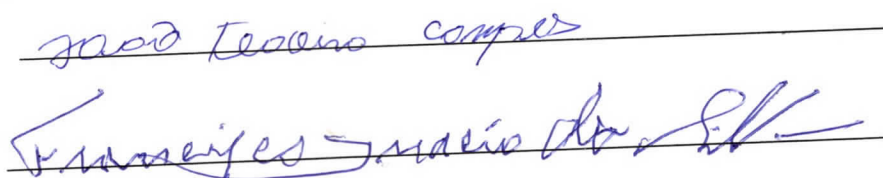 João Teodoro Campos
Francisco Inacio da Silva